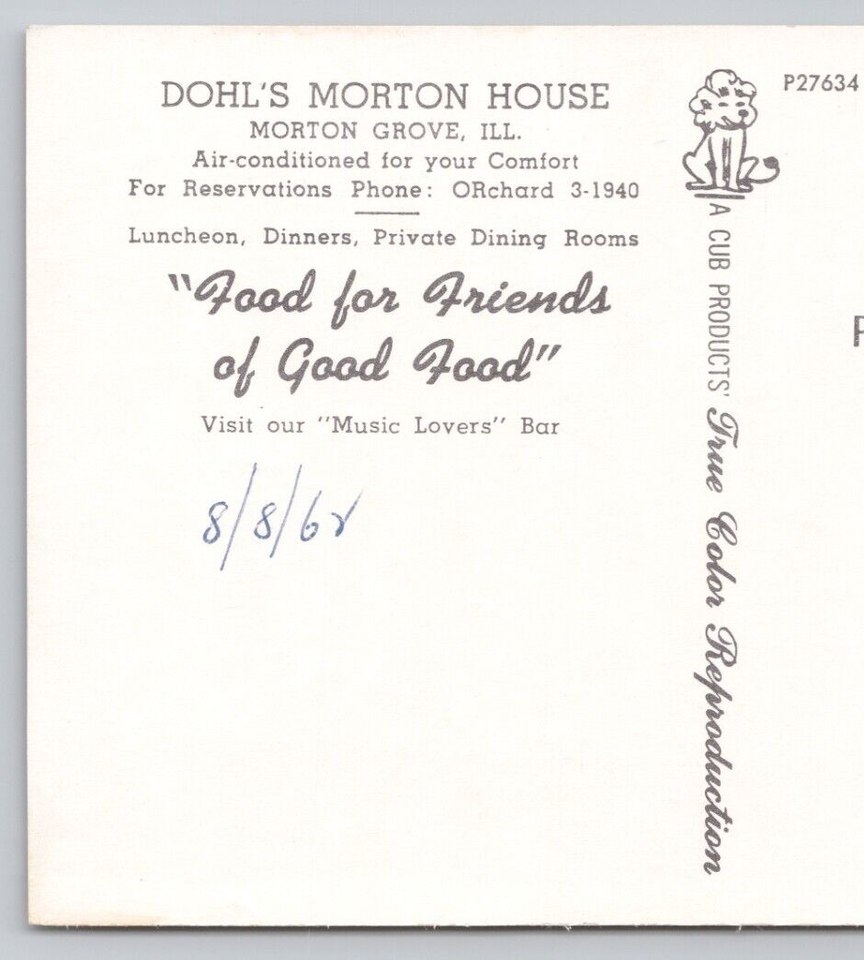 DOHL'S MORTON HOUSE
MORTON GROVE, ILL.
Air-conditioned for your Comfort
For Reservations Phone: ORchard 3-1940
Luncheon, Dinners, Private Dining Rooms
"Food for Friends
of Good Food"
Visit our "Music Lovers" Bar
8/8/62
A CUB PRODUCTS' True Color Reproduction
P27634
P